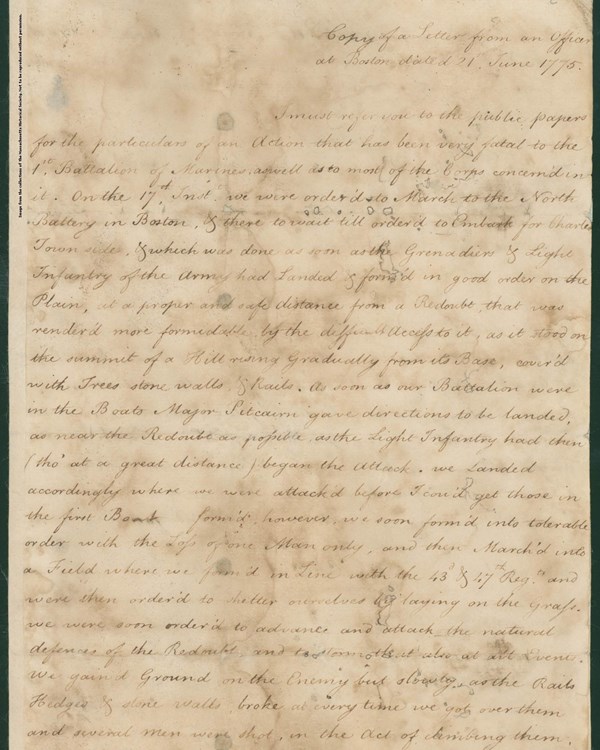 Image from the collections of the Massachusetts Historical Society. Not to be reproduced without permission.
Copy of a Letter from an Officer
at Boston dated 21st June 1775.
I must refer you to the public papers
for the particulars of an Action that has been very fatal to the
1st Battalion of Marines, as well as to most of the Corps concern'd in
it. On the 17th Inst. we were order'd to March to the North
Battery in Boston, & there to wait till order'd to Embark for Charles
Town side, & which was done as soon as the Grenadiers & Light
Infantry of the Army had Landed & form'd in good order on the
Plain, at a proper and safe distance from a Redoubt, that was
render'd more formidable by the difficult Access to it, as it stood on
the summit of a Hill rising Gradually from its Base, cover'd
with Trees stone walls, & Rails. As soon as our Battalion were
in the Boats Major Pitcairn gave directions to be landed,
as near the Redoubt as possible, as the Light Infantry had then
(tho' at a great distance) began the Attack. we Landed
accordingly where we were attack'd before I cou'd get those in
the first Boat form'd, however, we soon form'd into tolerable
order with the Loss of one Man only, and then March'd into
a Field where we form'd in Line with the 43d & 47th Regts. and
were then order'd to shelter ourselves by laying on the Grass.
we were soon order'd to advance and attack the natural
defences of the Redoubt, and to storm that also at all Events.
We gain'd Ground on the Enemy but slowly, as the Rails
Hedges & stone walls, broke at every time we got over them
and several men were shot, in the Act of climbing them.